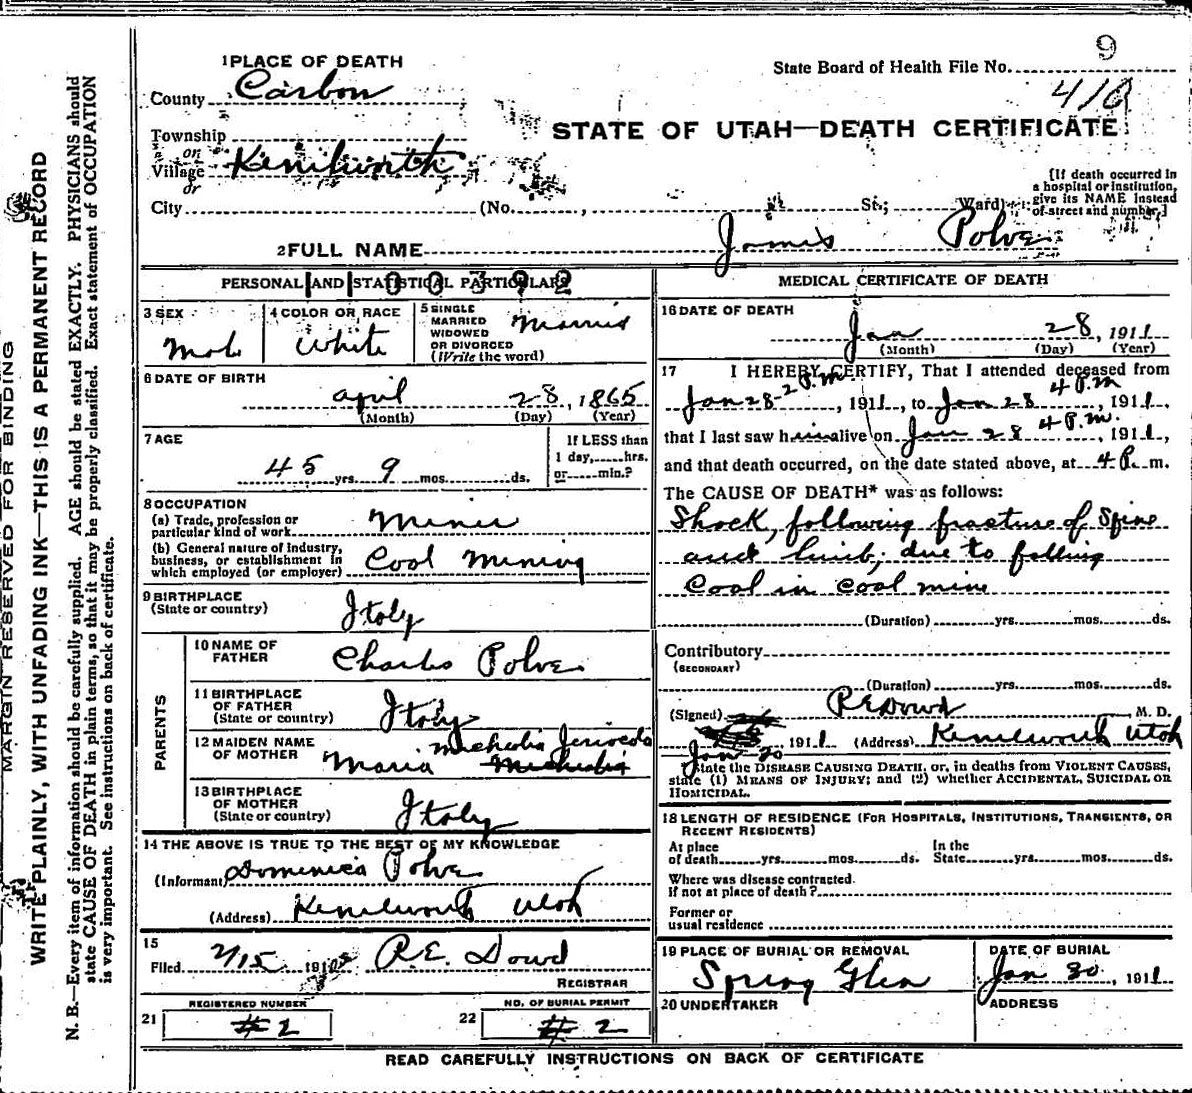 9
1 PLACE OF DEATH
State Board of Health File No.
County Carbon
410
Township
or
Village Kenilworth
or
STATE OF UTAH—DEATH CERTIFICATE
[If death occurred in
a hospital or institution,
give its NAME instead
of street and number.]
City (No. , St.; Ward)
2 FULL NAME James Polve
PERSONAL AND STATISTICAL PARTICULARS
3 SEX
Male
4 COLOR OR RACE
White
5 SINGLE
MARRIED
WIDOWED
OR DIVORCED
(Write the word)
Married
6 DATE OF BIRTH
April 28, 1865
(Month) (Day) (Year)
7 AGE
45 yrs. 9 mos. ds.
If LESS than
1 day, hrs.
or min.?
8 OCCUPATION
(a) Trade, profession or
particular kind of work Miner
(b) General nature of Industry,
business, or establishment in
which employed (or employer) Coal Mining
9 BIRTHPLACE
(State or country)
Italy
PARENTS
10 NAME OF
FATHER
Charles Polve
11 BIRTHPLACE
OF FATHER
(State or country)
Italy
12 MAIDEN NAME
OF MOTHER
Maria
13 BIRTHPLACE
OF MOTHER
(State or country)
Italy
14 THE ABOVE IS TRUE TO THE BEST OF MY KNOWLEDGE
(Informant) Domenica Polve
(Address) Kenilworth Utah
15
Filed 2/15 191 R.E. Dowd
REGISTRAR
REGISTERED NUMBER
21 #2
NO. OF BURIAL PERMIT
22 #2
MEDICAL CERTIFICATE OF DEATH
16 DATE OF DEATH
Jan 28, 1911
(Month) (Day) (Year)
17 I HEREBY CERTIFY, That I attended deceased from
Jan 28-2 P.m, 1911, to Jan 28 4 P.m, 1911,
that I last saw him alive on Jan 28 4 P.m., 1911,
and that death occurred, on the date stated above, at 4 P. m.
The CAUSE OF DEATH* was as follows:
Shock, following fracture of Spine
and limb; due to falling
Coal in coal mine
(Duration) yrs. mos. ds.
Contributory
(SECONDARY)
(Duration) yrs. mos. ds.
(Signed) R E Dowd M. D.
Jan 30 1911 (Address) Kenilworth Utah
*State the DISEASE CAUSING DEATH, or, in deaths from VIOLENT CAUSES,
state (1) MEANS OF INJURY; and (2) whether ACCIDENTAL, SUICIDAL OR
HOMICIDAL.
18 LENGTH OF RESIDENCE (FOR HOSPITALS, INSTITUTIONS, TRANSIENTS, OR
RECENT RESIDENTS)
At place
of death yrs. mos. ds.
In the
State yrs. mos. ds.
Where was disease contracted.
If not at place of death?
Former or
usual residence
19 PLACE OF BURIAL OR REMOVAL
Spring Glen
DATE OF BURIAL
Jan 30, 1911
20 UNDERTAKER
ADDRESS
READ CAREFULLY INSTRUCTIONS ON BACK OF CERTIFICATE
MARGIN RESERVED FOR BINDING
WRITE PLAINLY, WITH UNFADING INK—THIS IS A PERMANENT RECORD
N. B.—Every item of information should be carefully supplied. AGE should be stated EXACTLY. PHYSICIANS should
state CAUSE OF DEATH in plain terms, so that it may be properly classified. Exact statement of OCCUPATION
is very important. See instructions on back of certificate.